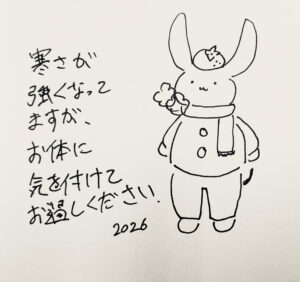 寒さが
強くなって
ますが、
お体に
気を付けて
お過しください.
2026